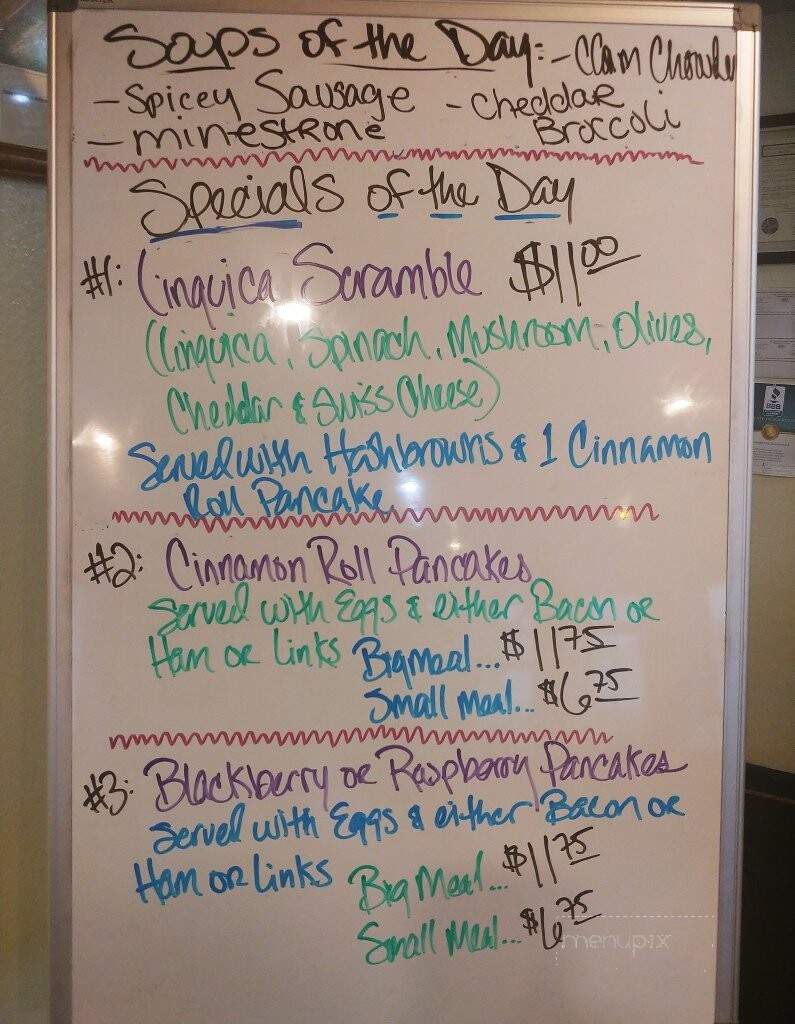 Soups of the Day: - Clam Chowder
- Spicey Sausage - Cheddar
- minestrone Broccoli
Specials of the Day
#1: Linquica Scramble $11.00
(Linquica, Spinach, Mushroom, Olives,
Cheddar & Swiss Cheese)
Served with Hashbrowns & 1 Cinnamon
Roll Pancake
#2: Cinnamon Roll Pancakes
Served with Eggs & either Bacon or
Ham or Links Big Meal... $11 75
Small Meal... $6 75
#3: Blackberry or Raspberry Pancakes
Served with Eggs & either Bacon or
Ham or Links Big Meal... $11 75
Small Meal... $6 75
menupix
BBB